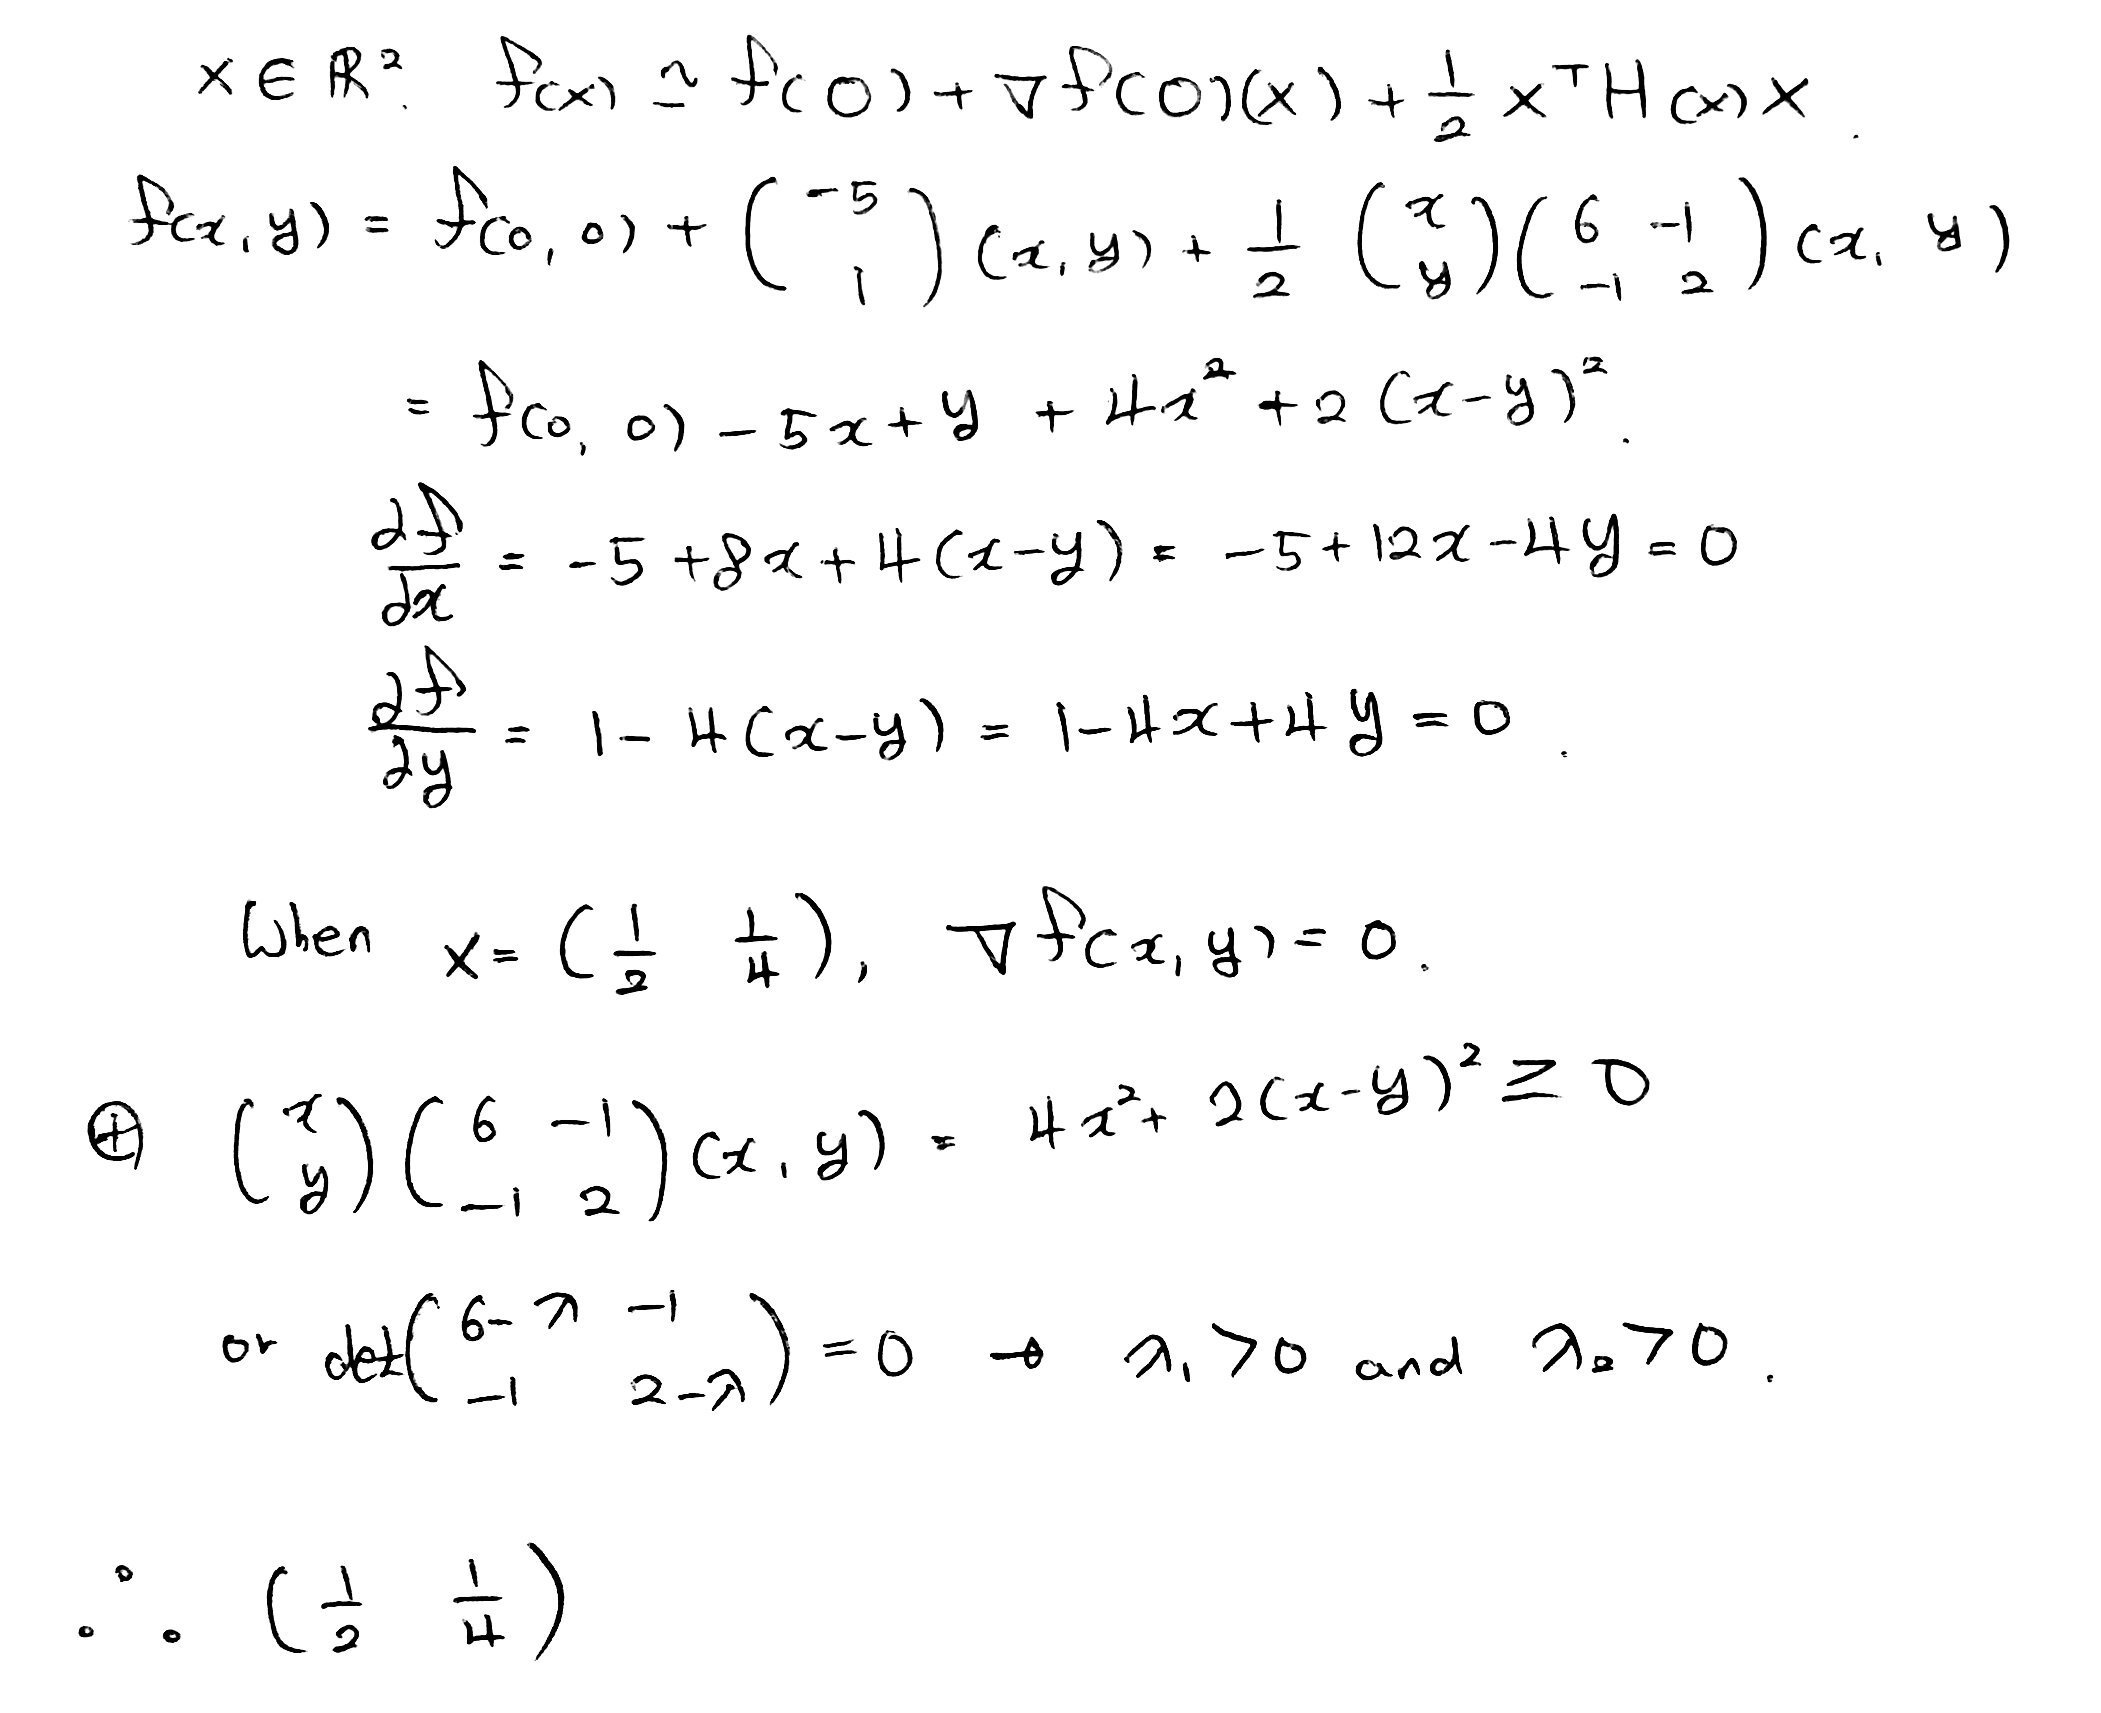 x ∈ ℝ². f(x) ≃ f(0) + ∇f(0)(x) + 1/2 xᵀH(x)x.
f(x, y) = f(0, 0) + (-5 1) (x, y) + 1/2 (x y) (6 -1 -1 2) (x, y)
= f(0, 0) - 5x + y + 4x² + 2(x-y)².
∂f/dx = -5 + 8x + 4(x-y) = -5 + 12x - 4y = 0
∂f/∂y = 1 - 4(x-y) = 1 - 4x + 4y = 0.
When x = (1/2 1/4), ∇f(x, y) = 0.
⊕ (x y) (6 -1 -1 2) (x, y) = 4x² + 2(x-y)² ≥ 0
or det(6-λ -1 -1 2-λ) = 0 → λ₁ > 0 and λ₂ > 0.
∴ (1/2 1/4)